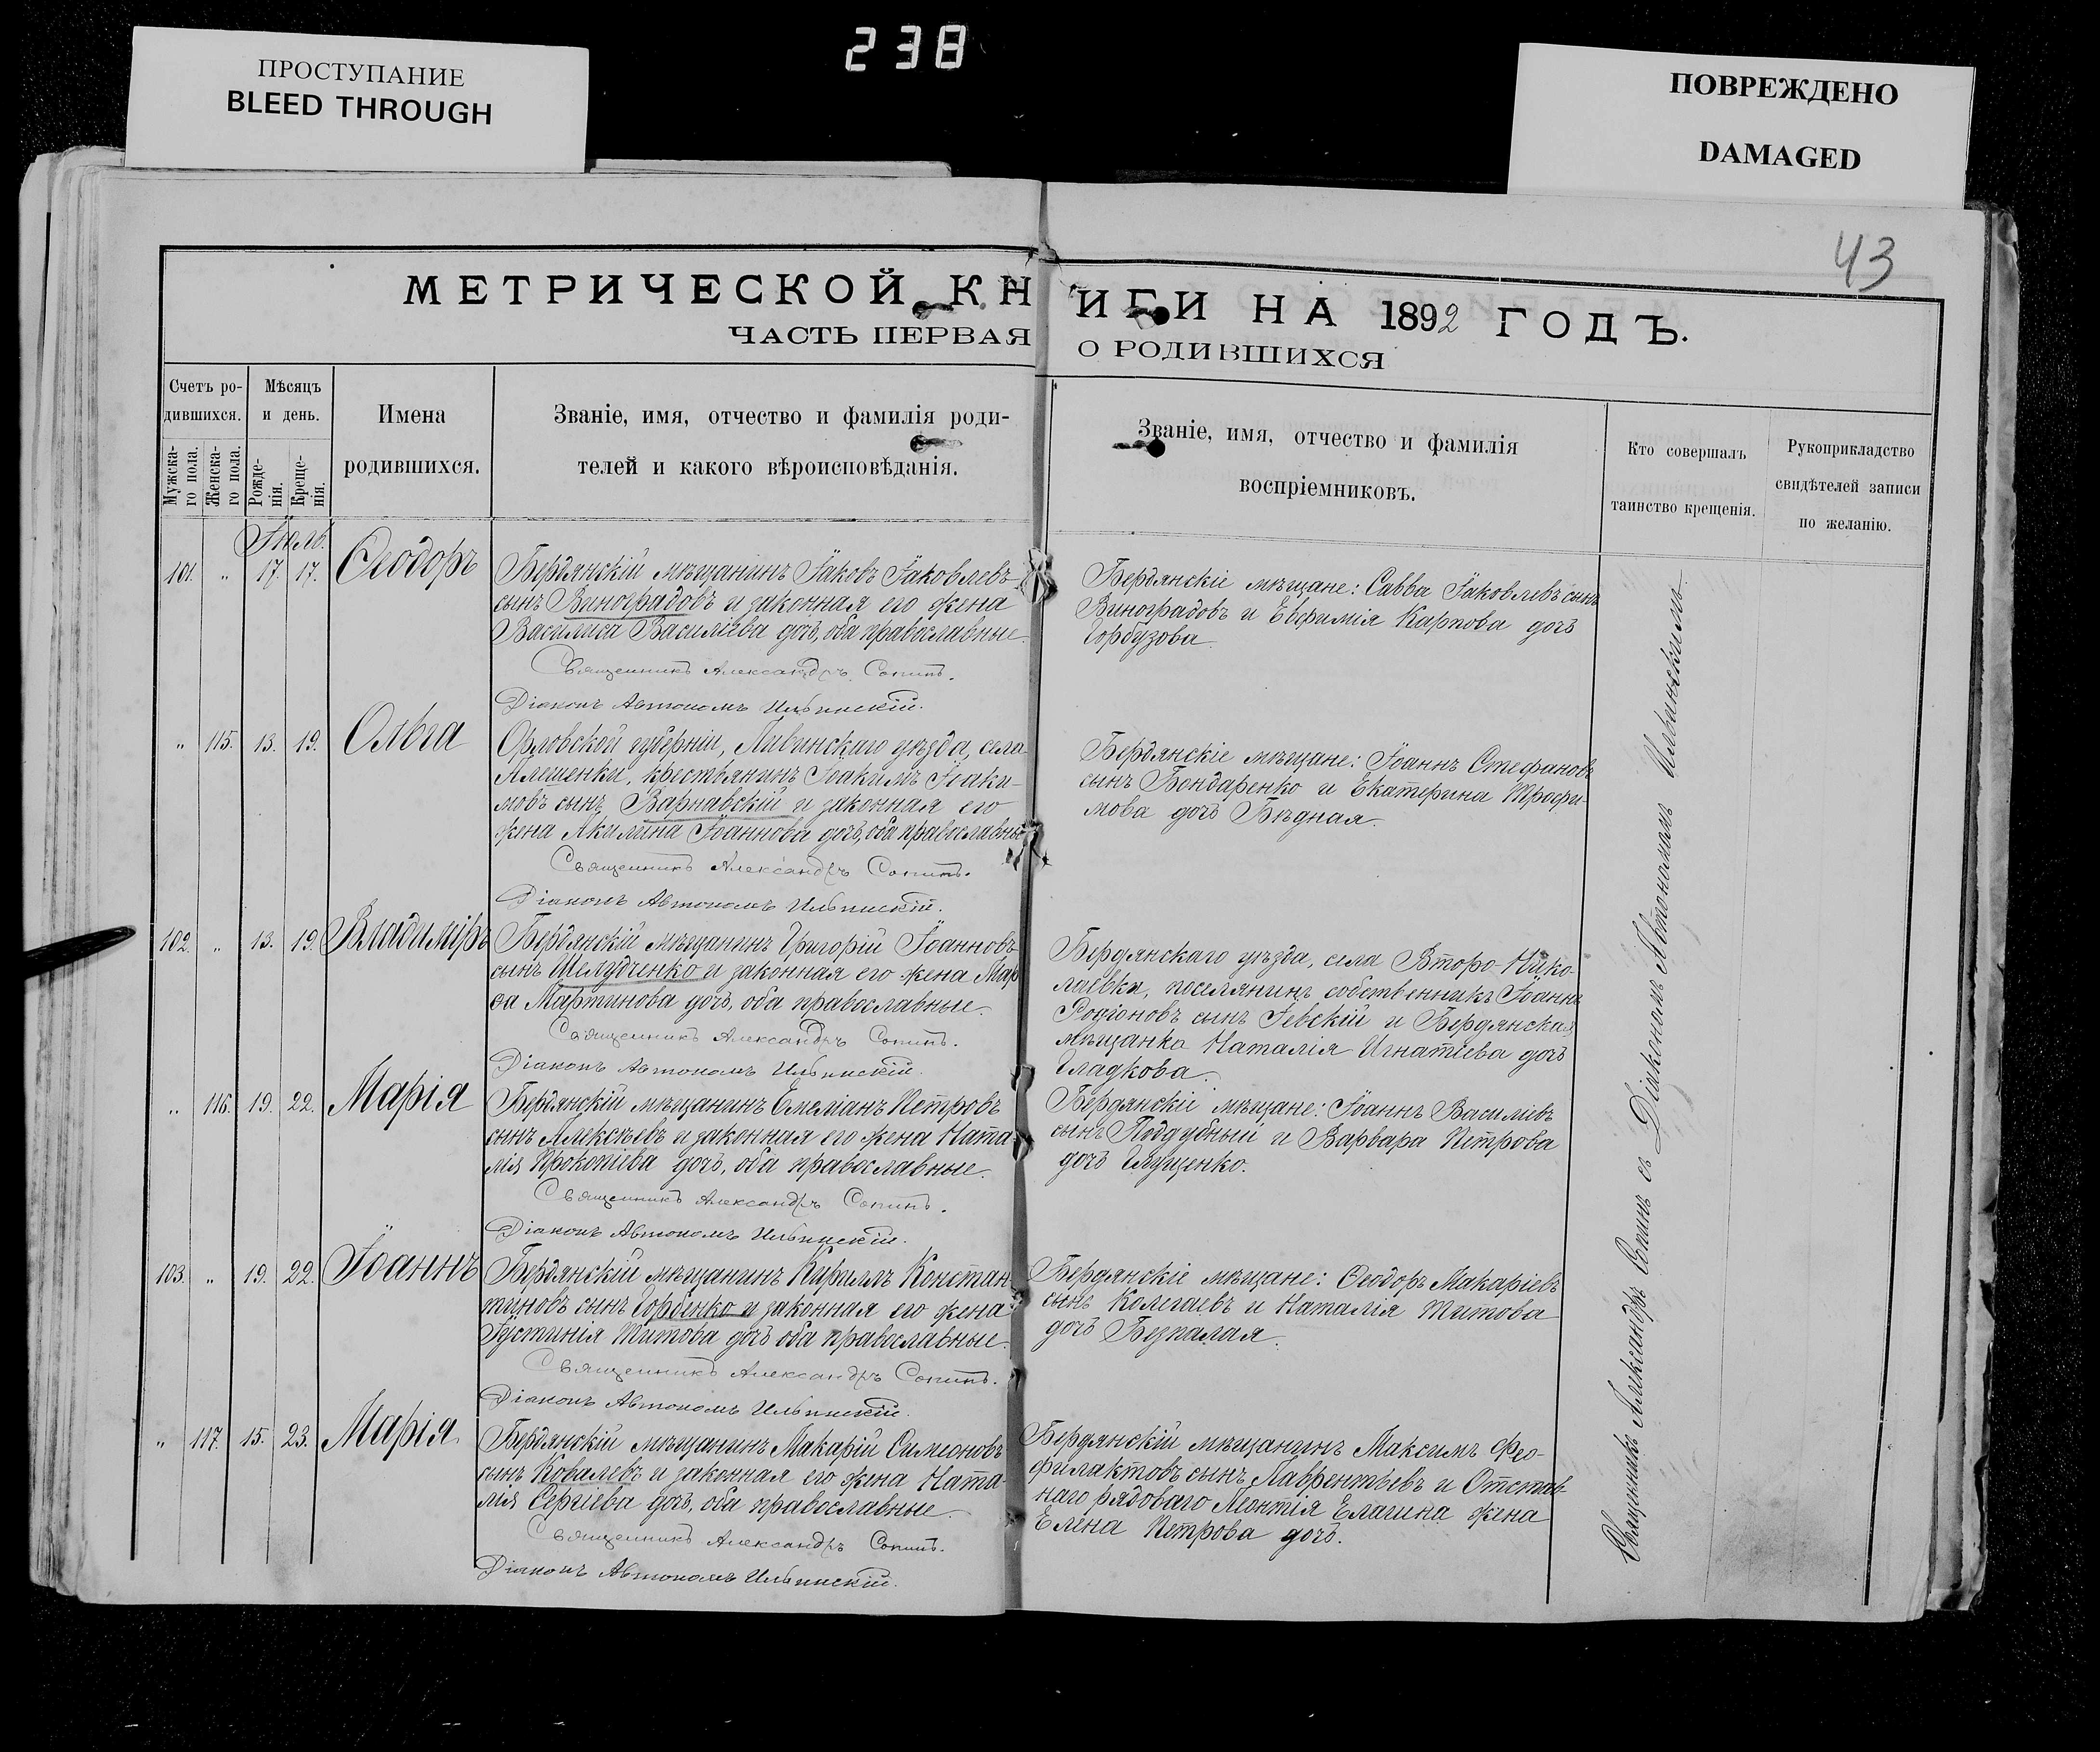 238
ПРОСТУПАНИЕ
BLEED THROUGH
ПОВРЕЖДЕНО
DAMAGED
43
МЕТРИЧЕСКОЙ КНИГИ НА 1892 ГОДЪ.
ЧАСТЬ ПЕРВАЯ О РОДИВШИХСЯ
Счетъ ро-
дившихся.
Мужска-
го пола.
Женска-
го пола.
Мѣсяцъ
и день.
Рожде-
нія.
Креще-
нія.
Имена
родившихся.
Званіе, имя, отчество и фамилія роди-
телей и какого вѣроисповѣданія.
Званіе, имя, отчество и фамилія
воспріемниковъ.
Кто совершалъ
таинство крещенія.
Рукоприкладство
свидѣтелей записи
по желанію.
Іюль.
101. „ 17. 17. Ѳеодоръ
Бердянскій мѣщанинъ Іаковъ Іаковлевъ
сынъ Виноградовъ и законная его жена
Василиса Василіева дочь, оба православные.
Священникъ Александръ Сопинъ.
Діаконъ Автономъ Ильинскій.
Бердянскіе мѣщане: Савва Іаковлевъ сынъ
Виноградовъ и Евфимія Карпова дочь
Горбузова.
„ 115. 13. 19. Ольга
Орловской губерніи, Ливинскаго уѣзда, села
Алешенки, крестьянинъ Іоакимъ Іоаки-
мовъ сынъ Варнавскій и законная его
жена Акилина Іоаннова дочь, оба православные
Священникъ Александръ Сопинъ.
Діаконъ Автономъ Ильинскій.
Бердянскіе мѣщане: Іоаннъ Стефановъ
сынъ Бондаренко и Екатерина Трофи-
мова дочь Бѣдная.
102. „ 13. 19. Владиміръ
Бердянскій мѣщанинъ Григорій Іоанновъ
сынъ Шелудченко и законная его жена Мар
ѳа Мартинова дочь, оба православные.
Священникъ Александръ Сопинъ.
Діаконъ Автономъ Ильинскій.
Бердянскаго уѣзда, села Второ-Нико-
лаевки, поселянинъ собственникъ Іоаннъ
Родіоновъ сынъ Гевскій и Бердянская
мѣщанка Наталія Игнатіева дочь
Гладкова.
„ 116. 19. 22. Марія
Бердянскій мѣщанинъ Емеліанъ Петровъ
сынъ Алексѣевъ и законная его жена Ната-
лія Прокопіева дочь, оба православные.
Священникъ Александръ Сопинъ.
Діаконъ Автономъ Ильинскій.
Бердянскіе мѣщане: Іоаннъ Василіевъ
сынъ Поддубный и Варвара Петрова
дочь Глущенко.
103. „ 19. 22. Іоаннъ
Бердянскій мѣщанинъ Кириллъ Констан
тиновъ сынъ Горбенко и законная его жена
Іустинія Титова дочь оба православные.
Священникъ Александръ Сопинъ.
Діаконъ Автономъ Ильинскій.
Бердянскіе мѣщане: Ѳеодоръ Макаріевъ
сынъ Колегаевъ и Наталія Титова
дочь Безпалая.
„ 117. 15. 23. Марія
Бердянскій мѣщанинъ Макарій Симеоновъ
сынъ Ковалевъ и законная его жена Ната-
лія Сергіева дочь, оба православные.
Священникъ Александръ Сопинъ.
Діаконъ Автономъ Ильинскій.
Бердянскій мѣщанинъ Максимъ Фео-
филактовъ сынъ Лаврентьевъ и Отстав
наго рядоваго Леонтія Елагина жена
Елена Петрова дочь.
Священникъ Александръ Сопинъ съ Діакономъ Автономомъ Ильинскимъ.